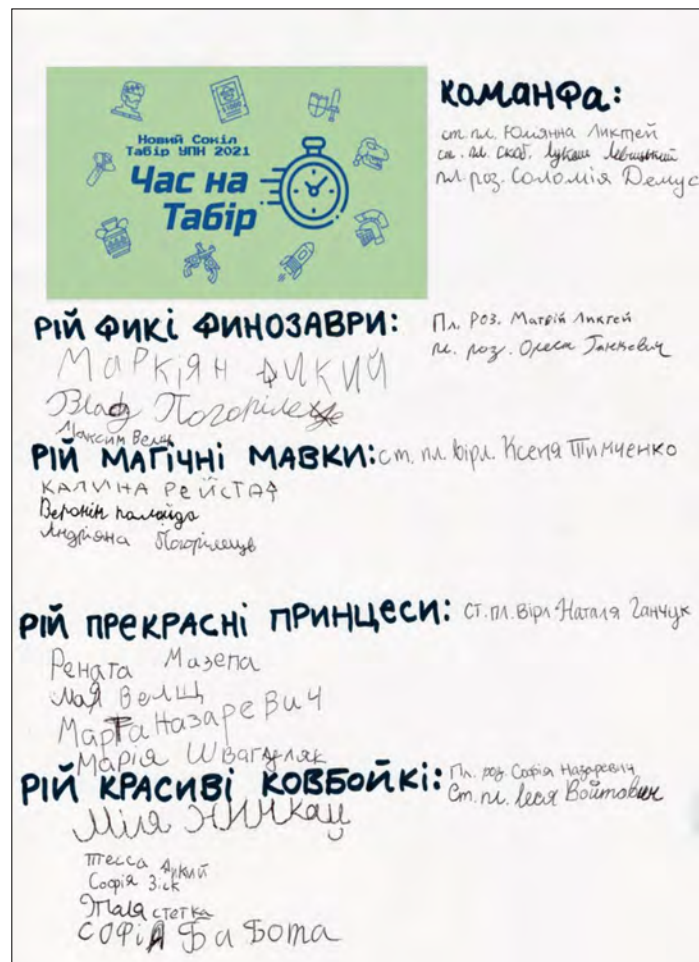 Новий Сокіл
Табір УПН 2021
Час на
Табір
КОМАНФа:
ст. пл. Юліянна Ликтей
ст. пл. скоб. Лукаш Левицький
пл. роз. Соломія Демус
РІЙ ФИКІ ФИНОЗАВРИ:
Пл. Роз. Матвій Ликтей
пл. роз. Олеса Ганкевич
Маркіян Дикий
Влад Погорілець
Максим Велщ
РІЙ МАГІЧНІ МАВКИ:
ст. пл. вірл. Ксеня Тимченко
КАЛИНА РЕЙСТАД
Веронік паляйдо
Андріяна Погорілець
РІЙ ПРЕКРАСНІ ПРИНЦЕСИ:
ст. пл. вірл. Наталя Ганчук
Рената Мазепа
Мая Велщ
Марта Назаревич
Марія Швагуляк
РІЙ КРАСИВІ КОВБОЙКІ:
Пл. роз. Софія Назаревич
Ст. пл. Леся Войтович
Міля
Тесса Дикий
Софія Зік
Таля стетка
Софія